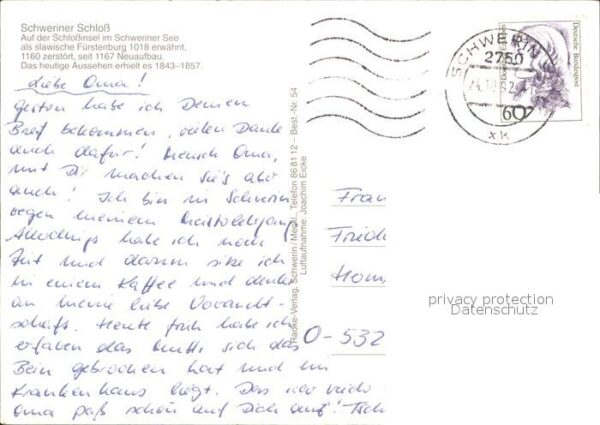 Schweriner Schloß
Auf der Schloßinsel im Schweriner See
als slawische Fürstenburg 1018 erwähnt,
1160 zerstört, seit 1167 Neuaufbau.
Das heutige Aussehen erhielt es 1843–1857.
Liebe Oma!
gestern habe ich Deinen
Brief bekommen, vielen Dank
auch dafür! Mensch Oma,
mit Dir machen sie's aber
auch! Ich bin in Schwerin
wegen meinem
Allerdings habe ich noch
Zeit und darum sitze ich
in einem Kaffee und denke
an meine liebe Verwandt-
schaft. Heute früh habe ich
erfahren das Mutti sich das
Bein gebrochen hat und im
Krankenhaus liegt. Das
Oma paß schön auf Dich auf! Tsch
Radke-Verlag, Schwerin/Meckl., Telefon 86 81 12 – Best.-Nr. 54
Luftaufnahme: Joachim Eicke
SCHWERIN
2750
24.10.92
xk
Deutsche Bundespost
60
Frau
Fried
Hom
O-532
privacy protection
Datenschutz